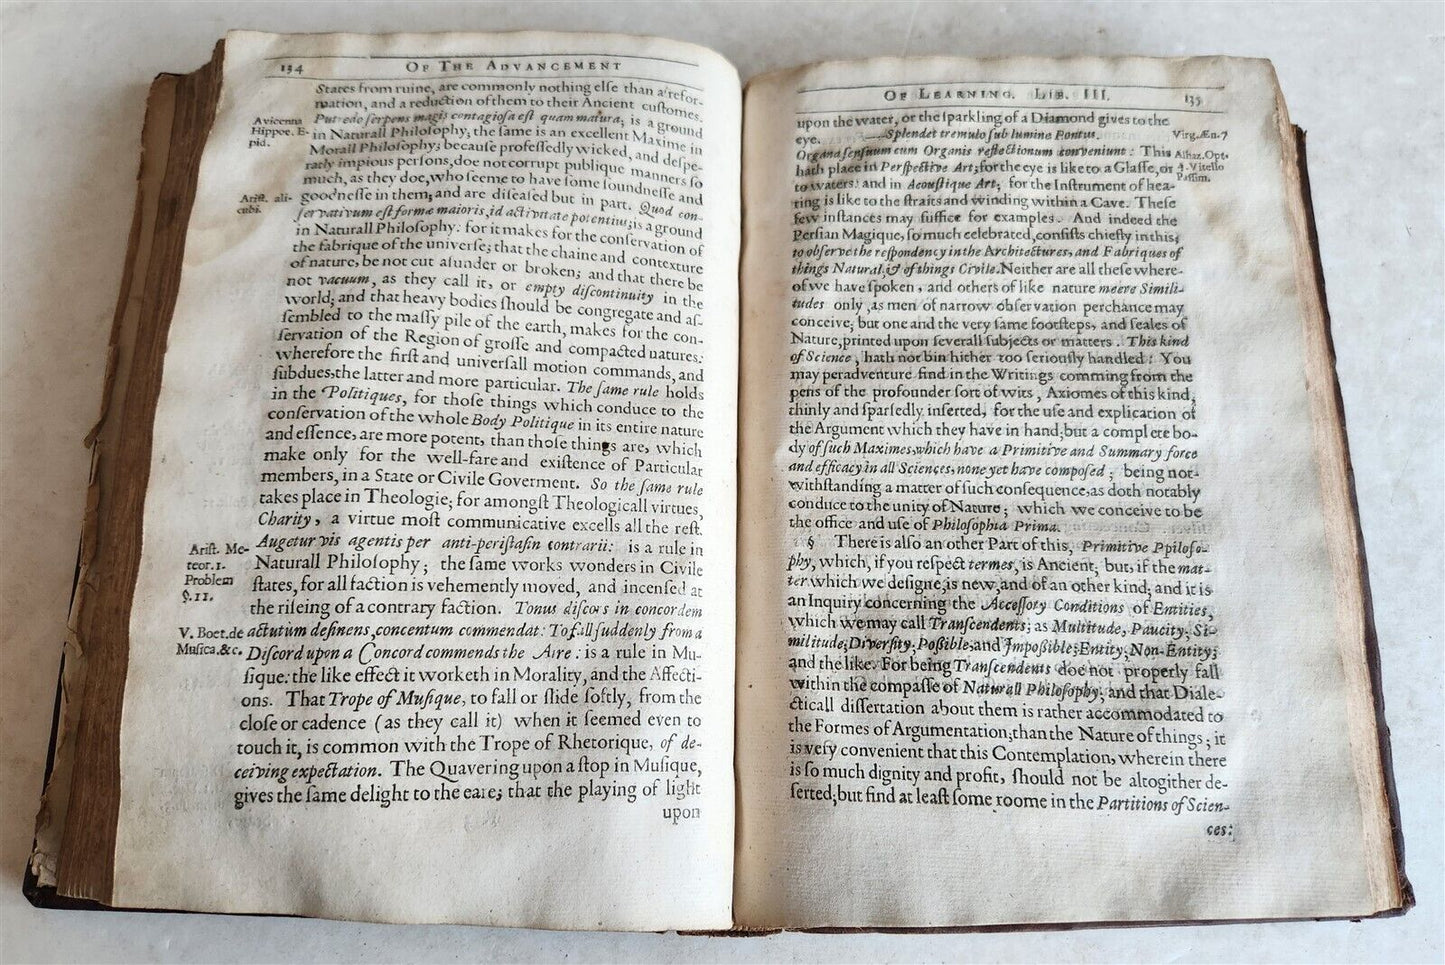 134 OF THE ADVANCEMENT
States from ruine, are commonly nothing else than a refor-
mation, and a reduction of them to their Ancient customes.
Putredo serpens magis contagiosa est quam matura; is a ground
in Naturall Philosophy, the same is an excellent Maxime in
Morall Philosophy; because professedly wicked, and despe-
rately impious persons, doe not corrupt publique manners so
much, as they doe, who seeme to have some soundnesse and
goodnesse in them, and are diseased but in part. Quod con-
servativum est formæ maioris, id activitate potentius; is a ground
in Naturall Philosophy: for it makes for the conservation of
the fabrique of the universe; that the chaine and contexture
of nature, be not cut asunder or broken; and that there be
not vacuum, as they call it, or empty discontinuity in the
world; and that heavy bodies should be congregate and as-
sembled to the massy pile of the earth, makes for the con-
servation of the Region of grosse and compacted natures:
wherefore the first and universall motion commands, and
subdues, the latter and more particular. The same rule holds
in the Politiques, for those things which conduce to the
conservation of the whole Body Politique in its entire nature
and essence, are more potent, than those things are, which
make only for the well-fare and existence of Particular
members, in a State or Civile Goverment. So the same rule
takes place in Theologie; for amongst Theologicall virtues,
Charity, a virtue most communicative excells all the rest.
Augetur vis agentis per anti-peristasin contrarii: is a rule in
Naturall Philosophy; the same works wonders in Civile
states, for all faction is vehemently moved, and incensed at
the riseing of a contrary faction. Tonus discors in concordem
actutùm definens, concentum commendat: To fall suddenly from a
Discord upon a Concord commends the Aire: is a rule in Mu-
sique: the like effect it worketh in Morality, and the Affecti-
ons. That Trope of Musique, to fall or slide softly, from the
close or cadence (as they call it) when it seemed even to
touch it, is common with the Trope of Rhetorique, of de-
ceiving expectation. The Quavering upon a stop in Musique,
gives the same delight to the eare; that the playing of light
upon
Avicenna
Hippoc. E-
pid.
Arist. ali-
cubi.
Arist. Me-
teor. 1.
Problem
§. 11.
V. Boet. de
Musica. &c.
OF LEARNING. LIB. III. 135
upon the water, or the sparkling of a Diamond gives to the
eye.
—Splendet tremulo sub lumine Pontus.
Organa sensuum cum Organis reflectionum conveniunt: This
hath place in Perspective Art; for the eye is like to a Glasse, or
to waters: and in Acoustique Art; for the Instrument of hea-
ring is like to the straits and winding within a Cave. These
few instances may suffice for examples. And indeed the
Persian Magique, so much celebrated, consists chiefly in this;
to observe the respondency in the Architectures, and Fabriques of
things Natural, & of things Civile. Neither are all these where-
of we have spoken, and others of like nature meere Simili-
tudes only, as men of narrow observation perchance may
conceive; but one and the very same footsteps, and seales of
Nature, printed upon severall subjects or matters. This kind
of Science, hath not bin hither too seriously handled: You
may peradventure find in the Writings comming from the
pens of the profounder sort of wits, Axiomes of this kind,
thinly and sparsedly inserted, for the use and explication of
the Argument which they have in hand; but a complete bo-
dy of such Maximes, which have a Primitive and Summary force
and efficacy in all Sciences, none yet have composed; being not-
withstanding a matter of such consequence, as doth notably
conduce to the unity of Nature; which we conceive to be
the office and use of Philosophia Prima.
§ There is also an other Part of this, Primitive Ppiloso-
phy, which, if you respect termes, is Ancient; but, if the mat-
ter which we designe, is new, and of an other kind; and it is
an Inquiry concerning the Accessory Conditions of Entities,
which we may call Transcendents; as Multitude, Paucity; Si-
militude; Diversity; Possible, and Impossible; Entity; Non-Entity;
and the like. For being Transcendents doe not properly fall
within the compasse of Naturall Philosophy; and that Diale-
cticall dissertation about them is rather accommodated to
the Formes of Argumentation; than the Nature of things; it
is very convenient that this Contemplation, wherein there
is so much dignity and profit, should not be altogither de-
serted; but find at least some roome in the Partitions of Scien-
ces:
Virg. Æn. 7
Alhaz. Opt.
Vitello
Passim.